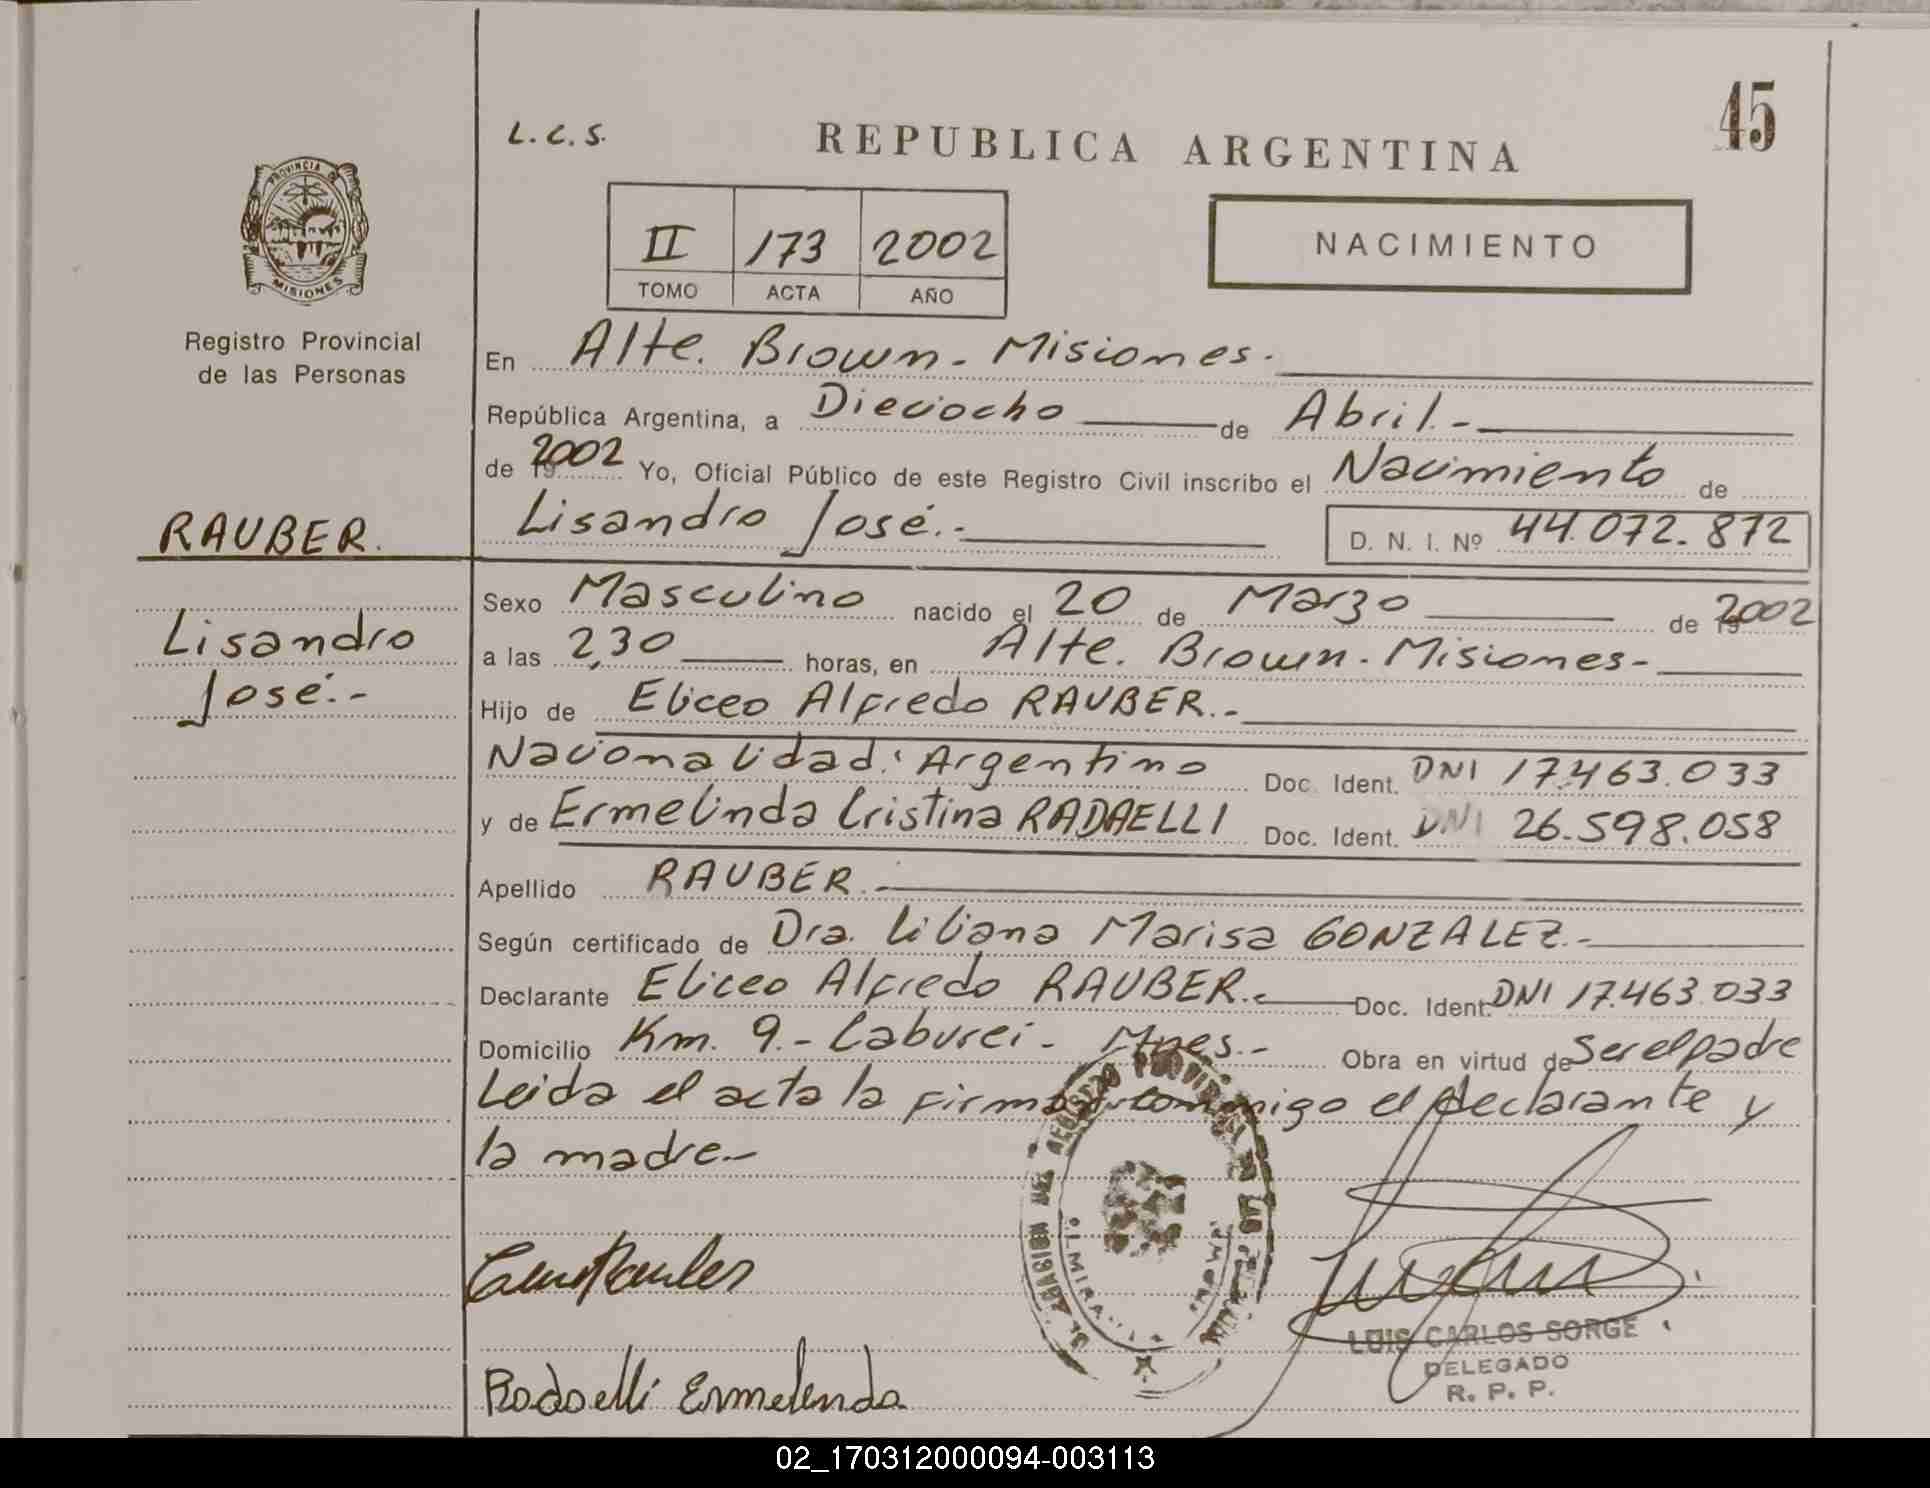 45
L. C. S.
REPUBLICA ARGENTINA
PROVINCIA DE
MISIONES
II 173 2002
TOMO ACTA AÑO
NACIMIENTO
Registro Provincial
de las Personas
En Alte. Brown - Misiones.
República Argentina, a Dieciocho de Abril.-
de 2002 Yo, Oficial Público de este Registro Civil inscribo el Nacimiento de
RAUBER.
Lisandro José.- D. N. I. Nº 44.072.872
Sexo Masculino nacido el 20 de Marzo de 2002
Lisandro
José.-
a las 2,30 horas, en Alte. Brown - Misiones-
Hijo de Eliceo Alfredo RAUBER.-
Nacionalidad: Argentino Doc. Ident. DNI 17.463.033
y de Ermelinda Cristina RADAELLI Doc. Ident. DNI 26.598.058
Apellido RAUBER.-
Según certificado de Dra. Liliana Marisa GONZALEZ.-
Declarante Eliceo Alfredo RAUBER.- Doc. Ident. DNI 17.463.033
Domicilio Km. 9.- Cabureí - Mnes.- Obra en virtud de Ser el padre
Leida el acta la firman conmigo el declarante y
la madre.-
Radaelli Ermelenda
LUIS CARLOS SORGE
DELEGADO
R. P. P.
02_170312000094-003113